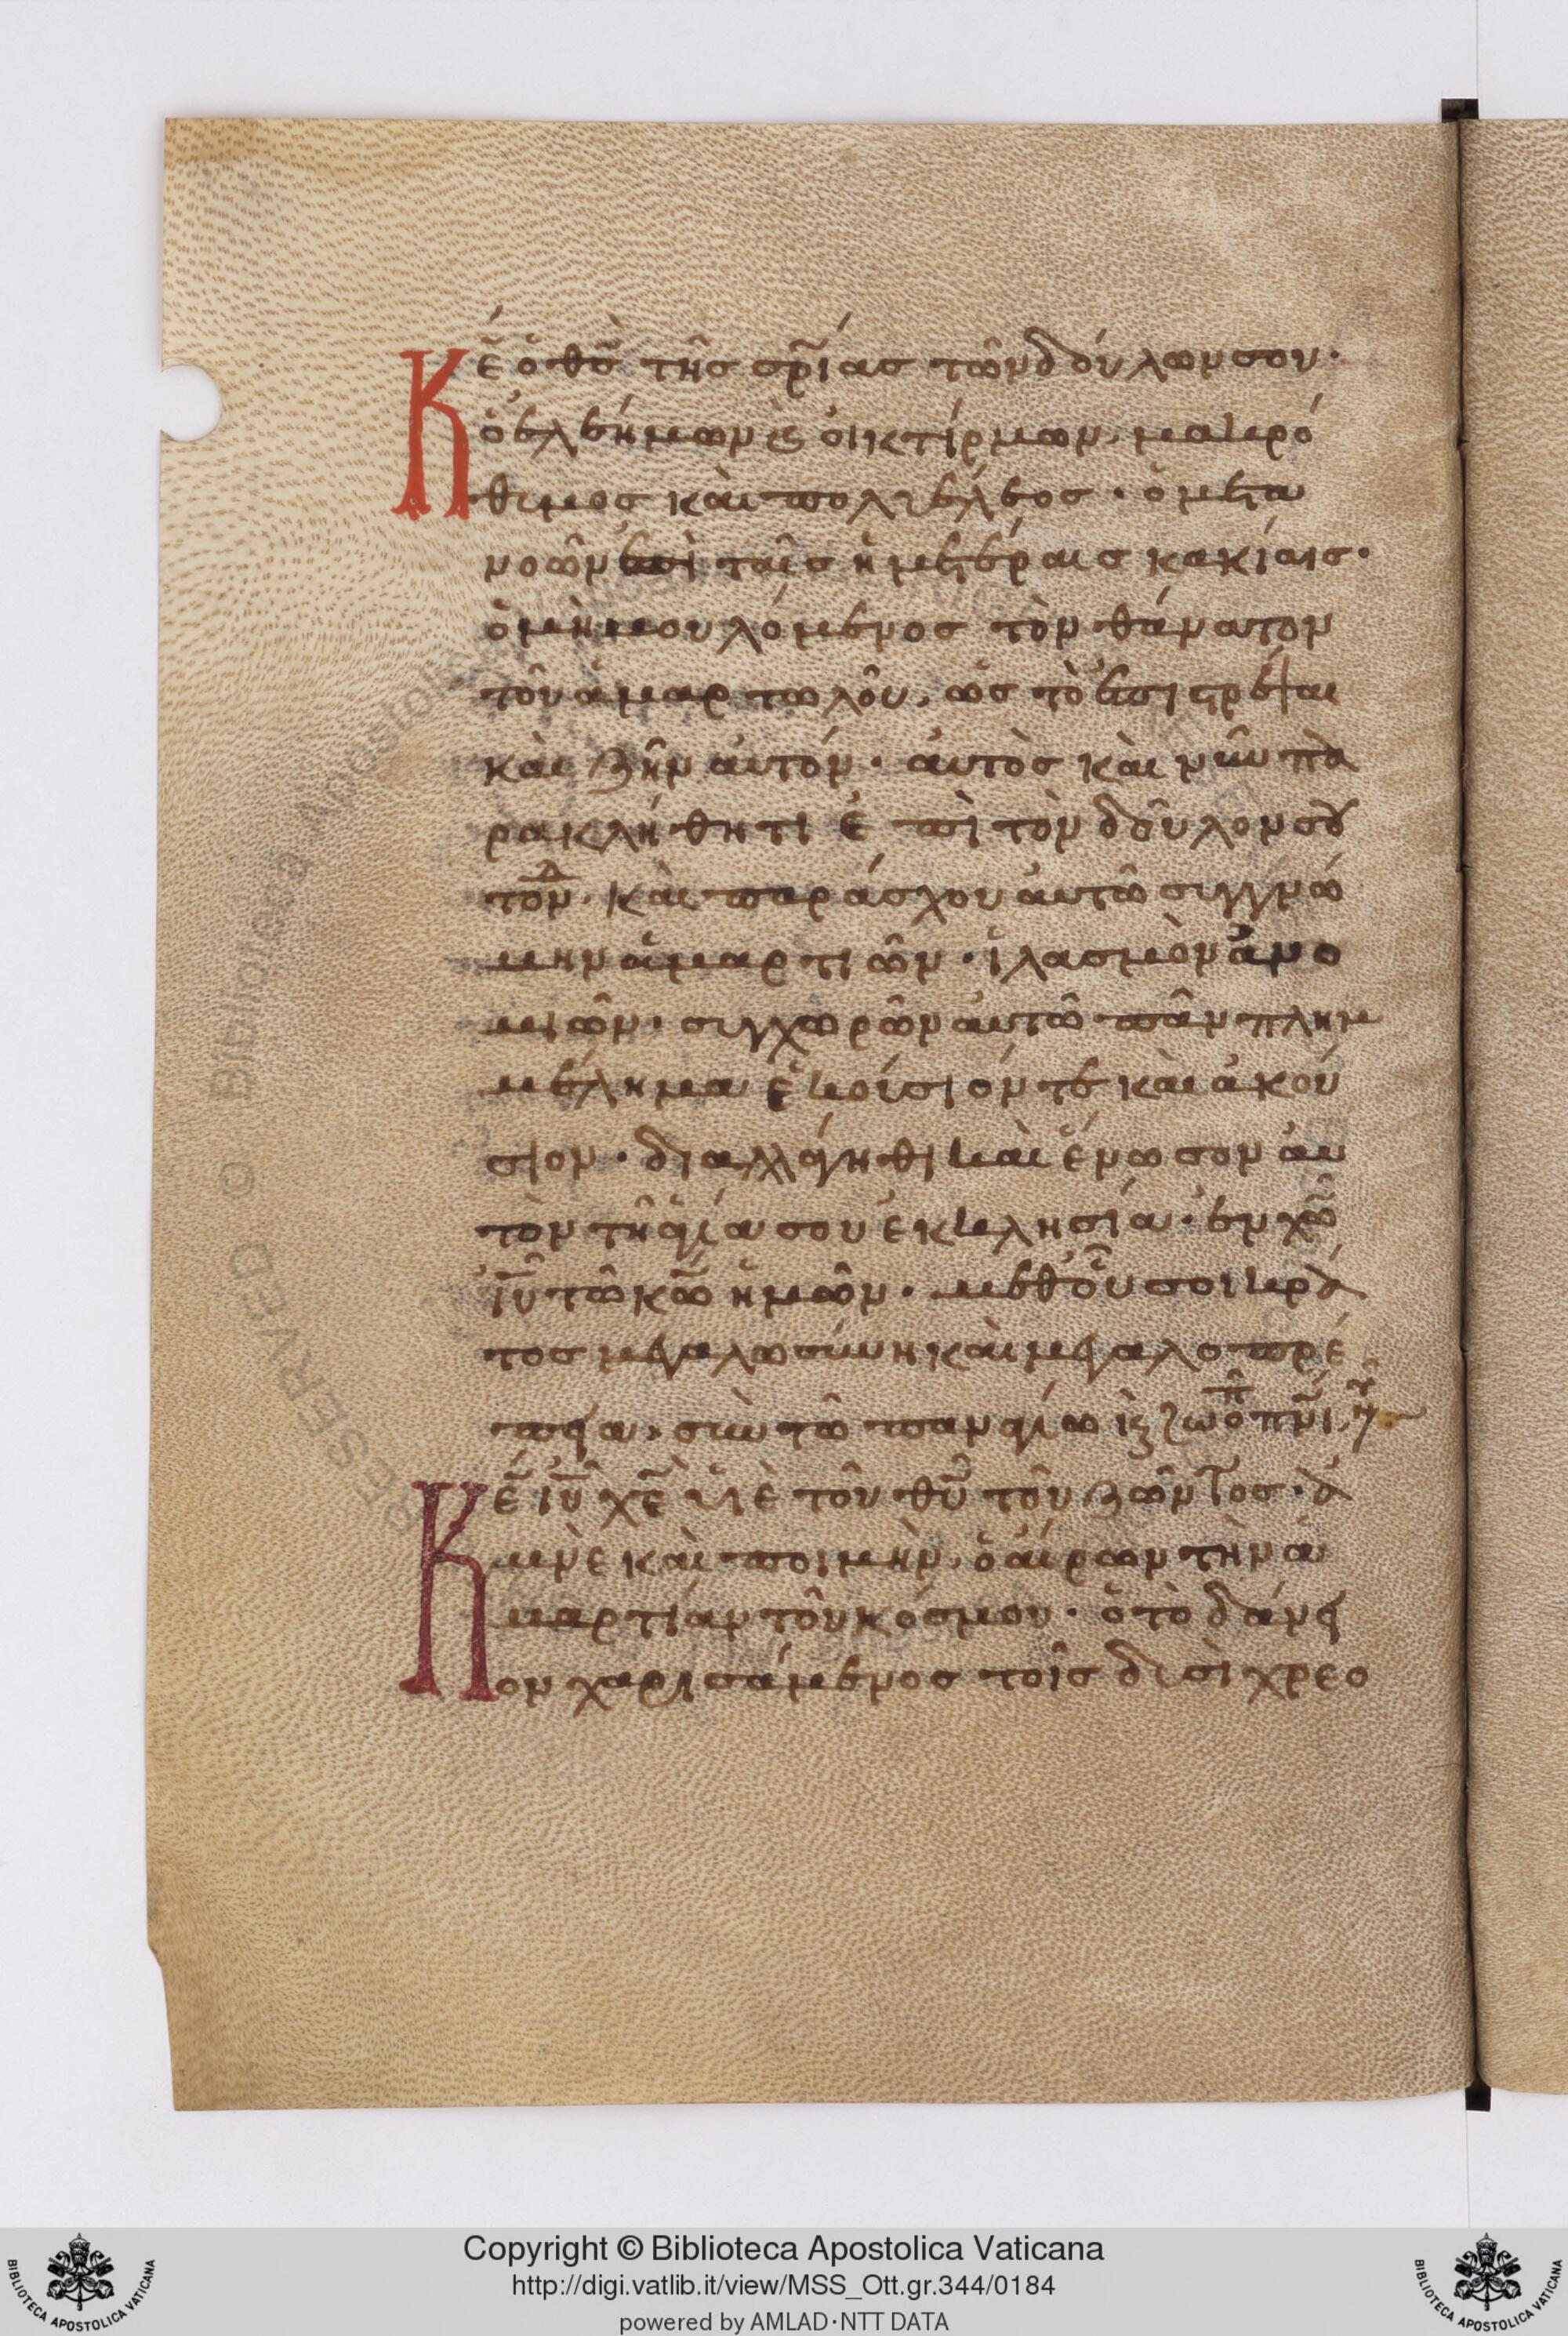 Κε̅ ὁ θς̅ τῆς σρ̅ίας τῶν δούλων σου·
ὁ ἐλεήμων ϗ οἰκτίρμων, μακρό
θιμος καὶ πολυέλεος· ὁ μετα
νοῶν ἐπὶ ταῖς ἡμετέραις κακίαις·
ὁ μὴ βουλόμενος τὸν θάνατον
τοῦ ἁμαρτωλοῦ, ὡς τὸ ἐπιστρέψαι
καὶ ζῆν αὐτόν· αὐτὸς καὶ νῦν πα
ρακλήθητι ἐπὶ τὸν δοῦλον σου
τόνδ· καὶ παράσχου αὐτῶ συγγνώ
μην ἁμαρτιῶν· ἱλασμὸν ἀνο
μιῶν· συγχωρῶν αὐτῶ πᾶν πλημ
μέλημα ἑκούσιόν τε καὶ ἀκού
σιον· διαλλάγηθι καὶ ἕνωσον αὐ
τὸν τῆ ἁγία σου ἐκκλησία· ἐν χω̅
ἰυ̅ τῶ κω̅ ἡμῶν· μεθ' οὗ σοι κρά
τος μεγαλωσύνη καὶ μεγαλοπρέ
πεια, σὺν τῶ παναγίω ϗ ζωοπ πνι̅,
Κε̅ ἰυ̅ χε̅ υἱὲ τοῦ θυ̅ τοῦ ζῶντος· ἀ
μνὲ καὶ ποιμὴν, ὁ αἴρων τὴν ἁ
μαρτίαν τοῦ κόσμου· ὁ τὸ δάνει
ον χαρισάμενος τοῖς δυσὶ χρεο
Copyright © Biblioteca Apostolica Vaticana
http://digi.vatlib.it/view/MSS_Ott.gr.344/0184
powered by AMLAD·NTT DATA
BIBLIOTECA APOSTOLICA VATICANA
BIBLIOTECA APOSTOLICA VATICANA